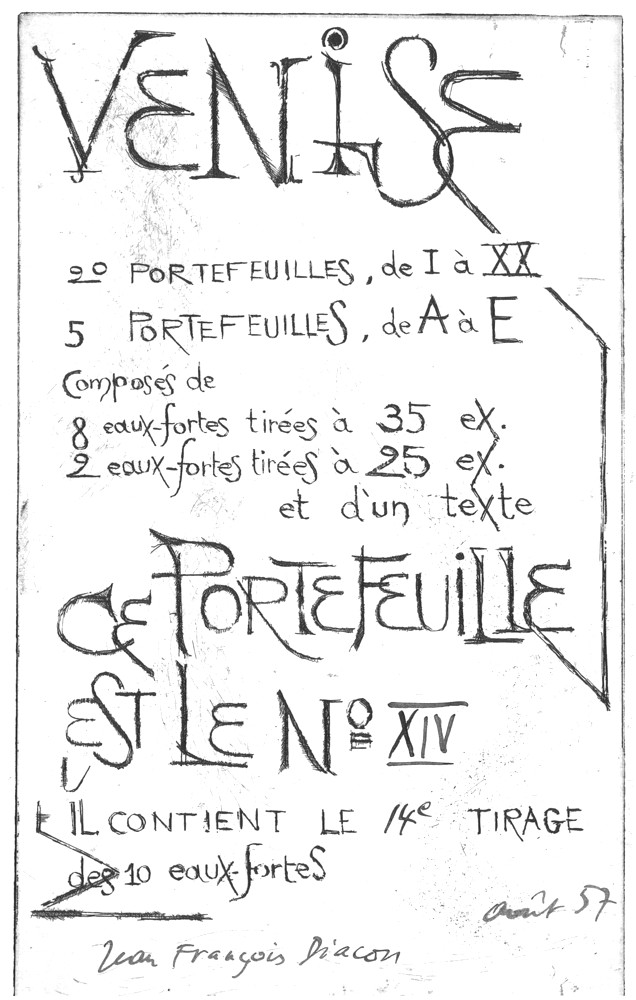 VENISE
20 PORTEFEUILLES, de I à XX
5 PORTEFEUILLES, de A à E
Composés de
8 eaux-fortes tirées à 35 ex.
2 eaux-fortes tirées à 25 ex.
et d'un texte
CE PORTEFEUILLE
EST LE Nº XIV
IL CONTIENT LE 14e TIRAGE
des 10 eaux-fortes
août 57
Jean François Diacon